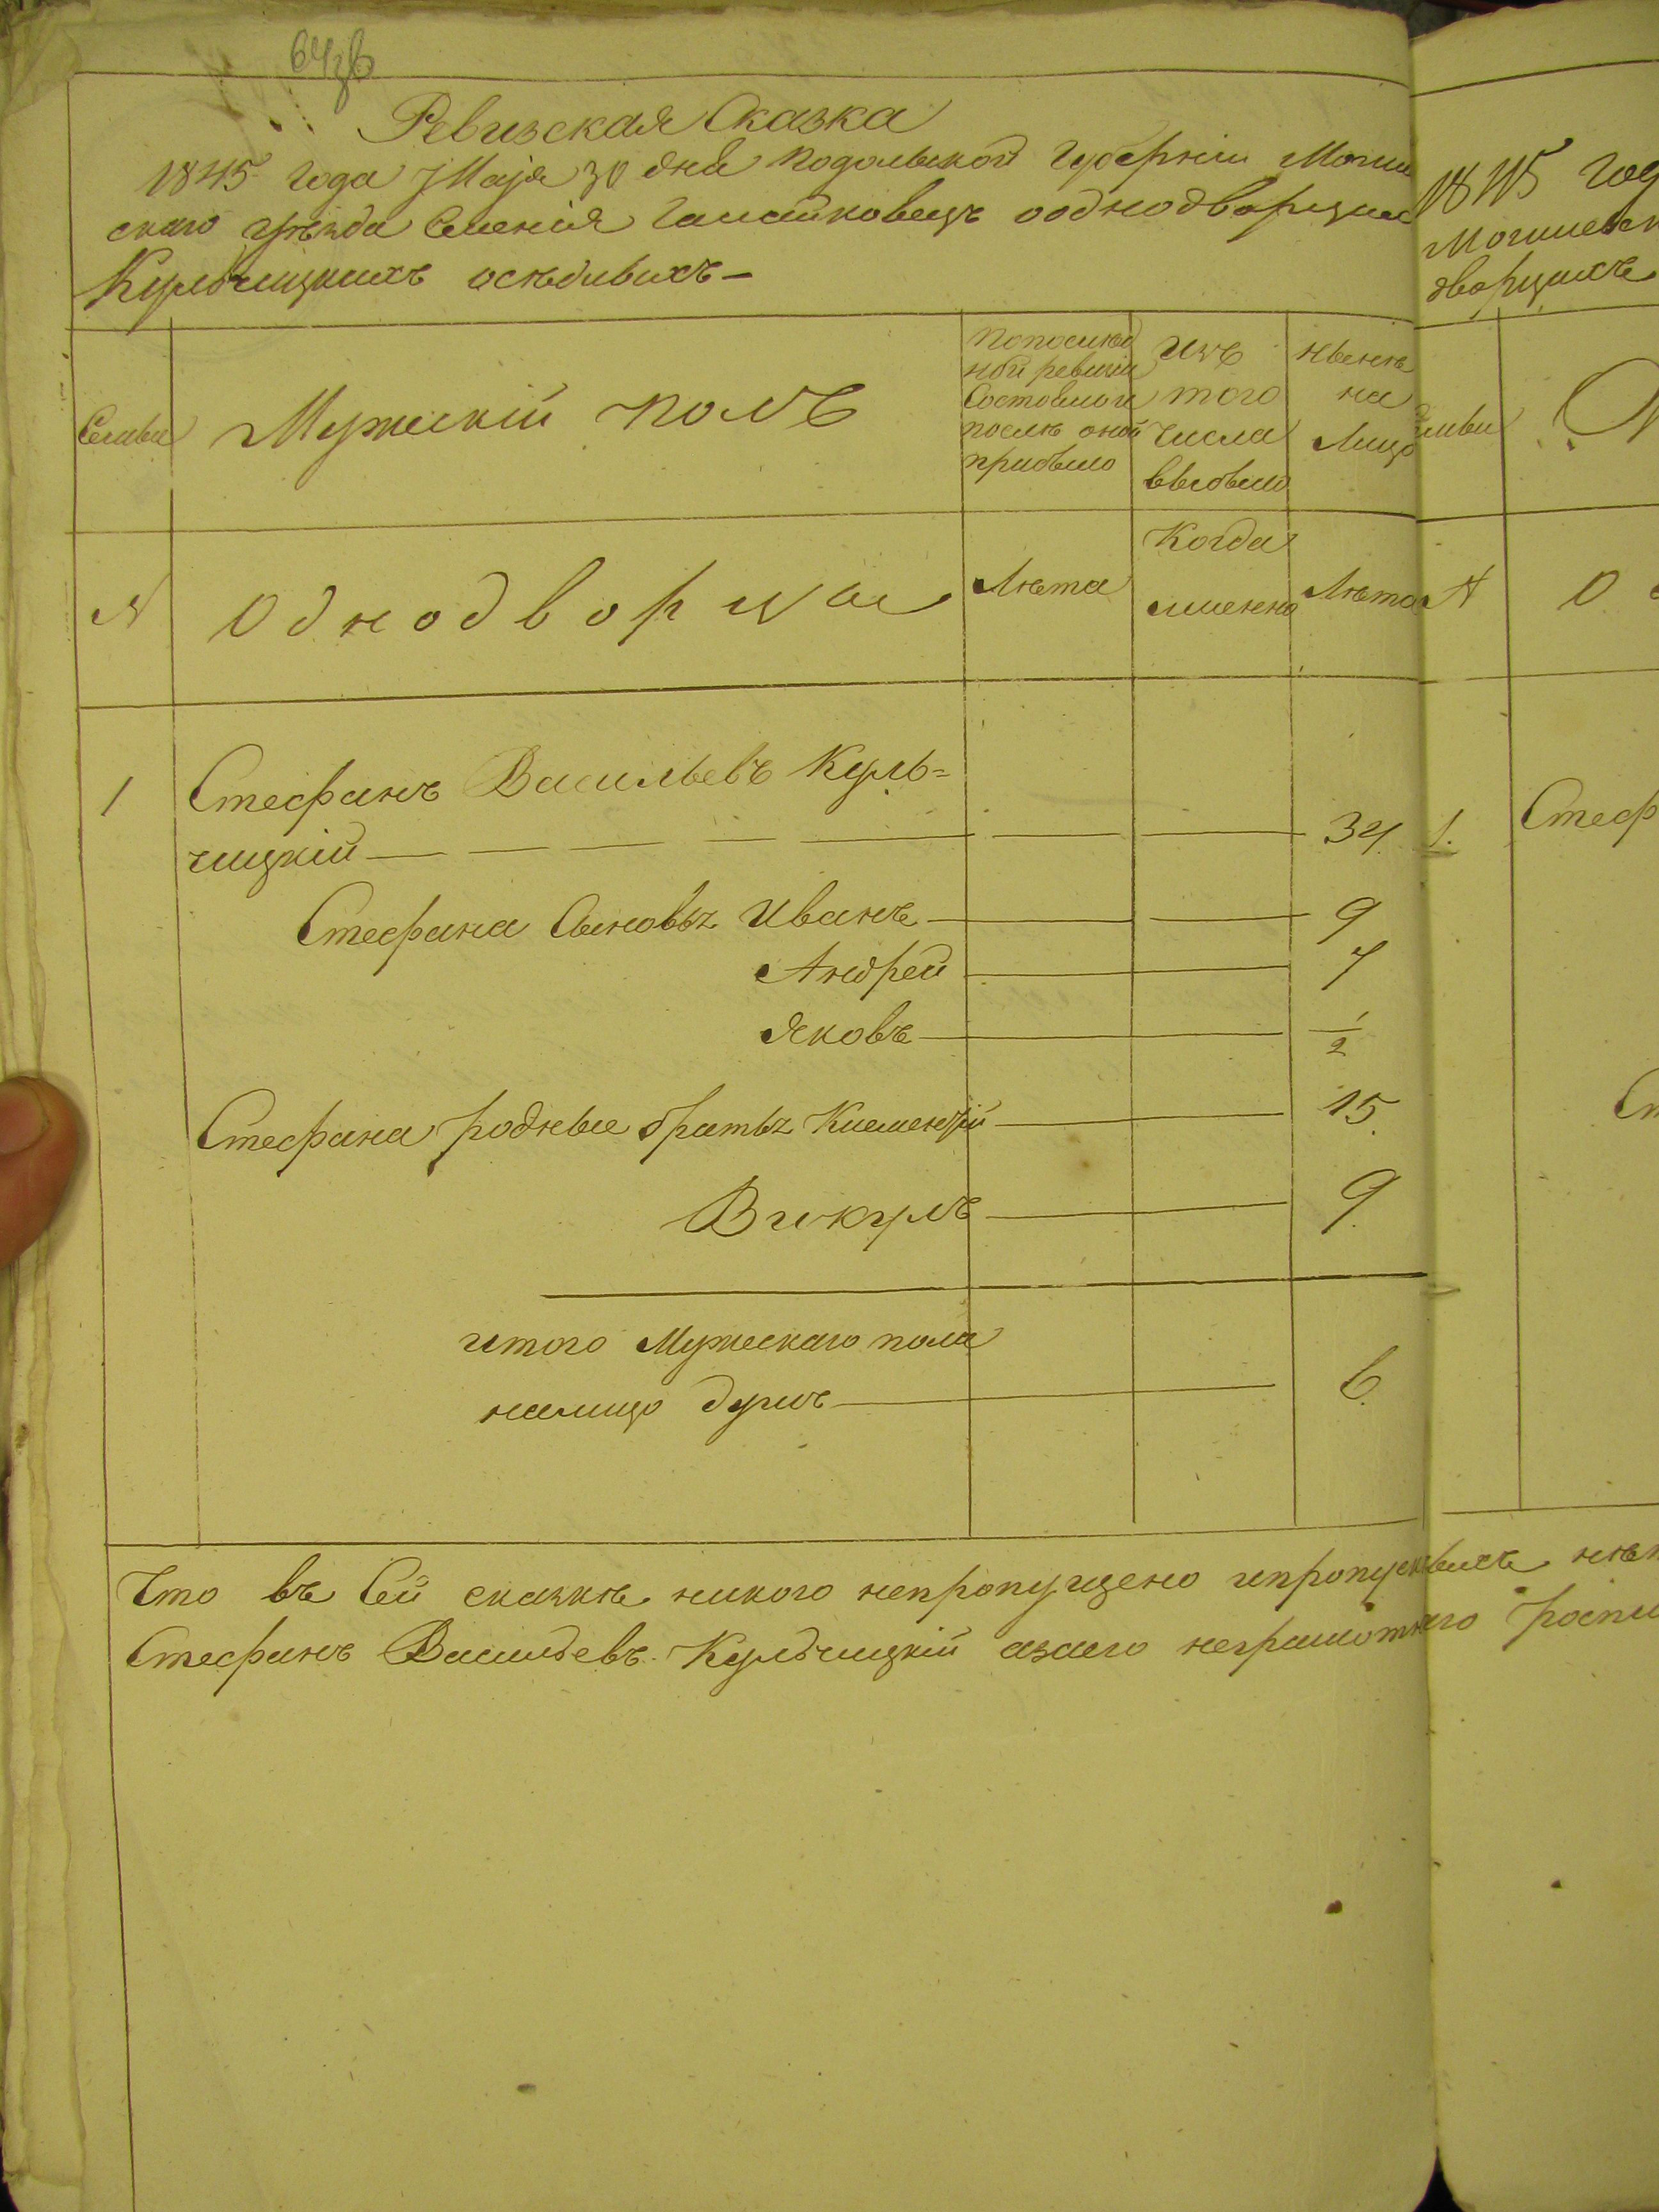 64зв
Ревизская Сказка
1845 года Маія 30 дня Подольской Губерніи Могил
скаго уѣзда Селенія Галайковецъ ооднодворцах
Кульчицкихъ осѣдлвихъ —
Семьи
Мужескій полъ
Попослѣд
ной ревизіи
Состояло и
послѣ оной
прибыло
Изъ
того
числа
выбыло
Нынѣ
на
Лицо
№
Однодворцы
Лѣта
Когда
именно
Лѣта
1 Стефанъ Васильевъ Куль=
чицкій — 34.
Стефана Сыновья Иванъ — 9
Андрей — 7
Яковъ — 1/2
Стефана родные братья Климентій — 15.
Викулъ — 9.
итого Мужескаго пола
налицо душъ — 6.
Что въ Сей сказкѣ никого непропущено ипропускныхъ нѣт
Стефанъ Васильевъ Кульчицкій азаего неграмотнаго роспи
1845 год
Могилевск
дворцихъ
емьи
М
№
О
1. Стеф
Ст